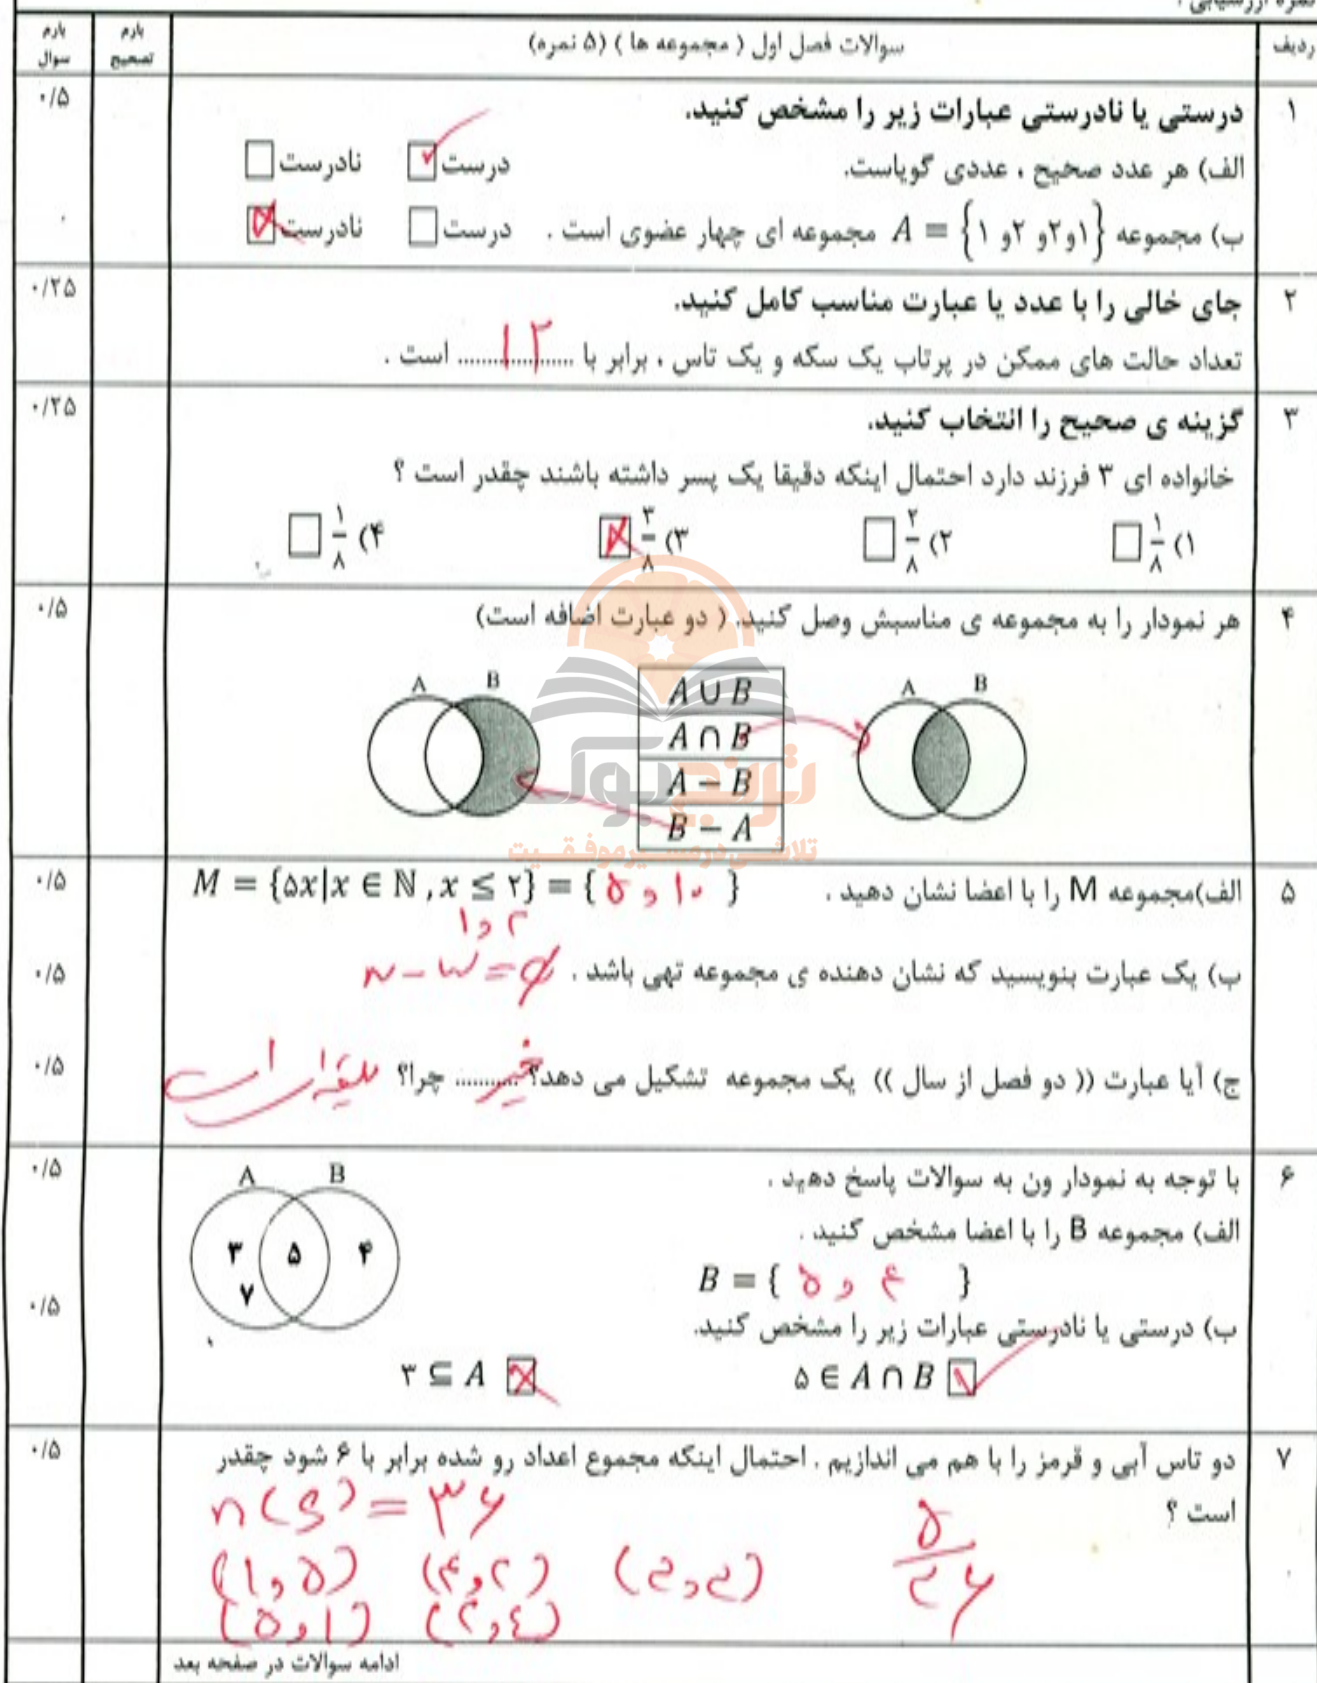 نمره ارزشیابی :
ردیف سوالات فصل اول ( مجموعه ها ) (۵ نمره) بارم تصحیح بارم سوال
۱ درستی یا نادرستی عبارات زیر را مشخص کنید. ۰/۵
الف) هر عدد صحیح ، عددی گویاست. درست نادرست
ب) مجموعه A = {۱و۲و ۲و ۱} مجموعه ای چهار عضوی است . درست نادرست
۲ جای خالی را با عدد یا عبارت مناسب کامل کنید. ۰/۲۵
تعداد حالت های ممکن در پرتاب یک سکه و یک تاس ، برابر با ........۱۲........ است .
۳ گزینه ی صحیح را انتخاب کنید. ۰/۲۵
خانواده ای ۳ فرزند دارد احتمال اینکه دقیقا یک پسر داشته باشند چقدر است ؟
۱) ۱/۸ ۲) ۲/۸ ۳) ۳/۸ ۴) ۱/۸
۴ هر نمودار را به مجموعه ی مناسبش وصل کنید. ( دو عبارت اضافه است) ۰/۵
A B
A B
A ∪ B
A ∩ B
A − B
B − A
ترنج بوک
تلاشی در مسیر موفقیت
۵ الف)مجموعه M را با اعضا نشان دهید . M = {۵x|x ∈ ℕ , x ≤ ۲} = { ۵ و ۱۰ } ۰/۵
۱ و ۲
ب) یک عبارت بنویسید که نشان دهنده ی مجموعه تهی باشد . N − W = ∅ ۰/۵
ج) آیا عبارت (( دو فصل از سال )) یک مجموعه تشکیل می دهد؟ خیر ........ چرا؟ سلیقه ای است ۰/۵
۶ با توجه به نمودار ون به سوالات پاسخ دهید . ۰/۵
A B
۳ ۵ ۴
۷
الف) مجموعه B را با اعضا مشخص کنید .
B = { ۵ و ۴ }
ب) درستی یا نادرستی عبارات زیر را مشخص کنید. ۰/۵
۵ ∈ A ∩ B ۳ ⊆ A
۷ دو تاس آبی و قرمز را با هم می اندازیم . احتمال اینکه مجموع اعداد رو شده برابر با ۶ شود چقدر ۰/۵
است ؟
n(S) = ۳۶
(۱و۵) (۴و۲) (۳و۳) ۵/۳۶
(۵و۱) (۲و۴)
ادامه سوالات در صفحه بعد